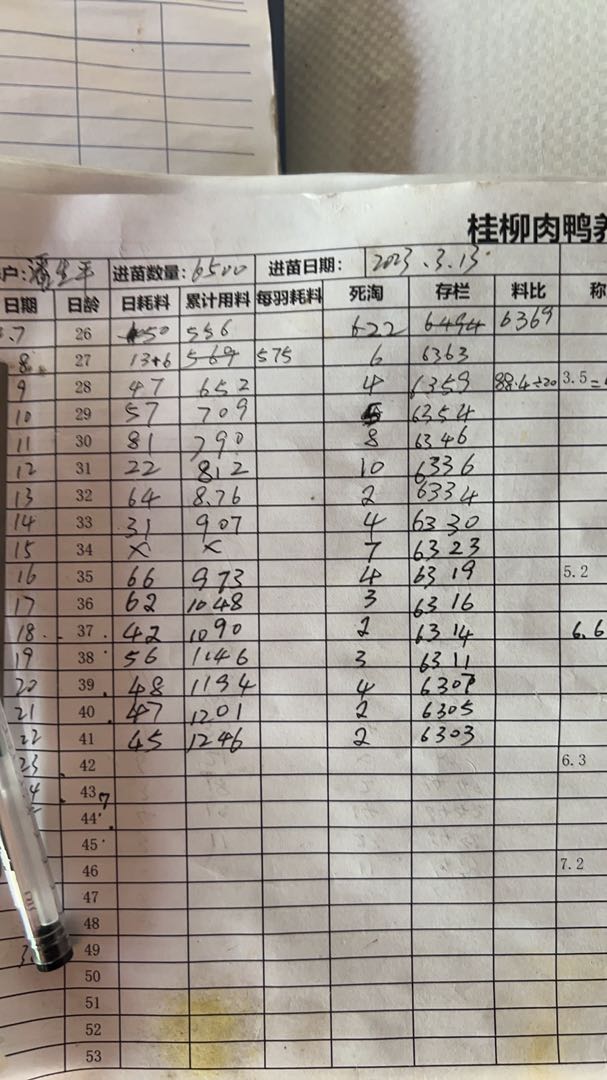 桂柳肉鸭养
户:潘生平 进苗数量:6500 进苗日期: 2023.3.13
日期 日龄 日耗料 累计用料 每羽耗料 死淘 存栏 料比 称
.7 26 50 556 622 6494 6369
8 27 13+6 569 575 6 6363
9 28 47 652 4 6359 88.4÷20 3.5=
10 29 57 709 5 6354
11 30 81 790 8 6346
12 31 22 812 10 6336
13 32 64 876 2 6334
14 33 31 907 4 6330
15 34 × × 7 6323
16 35 66 973 4 6319 5.2
17 36 62 1048 3 6316
18 37 42 1090 2 6314 6.6
19 38 56 1146 3 6311
20 39 48 1194 4 6307
21 40 47 1201 2 6305
22 41 45 1246 2 6303
23 42 6.3
43
44
45
46 7.2
47
48
49
50
51
52
53